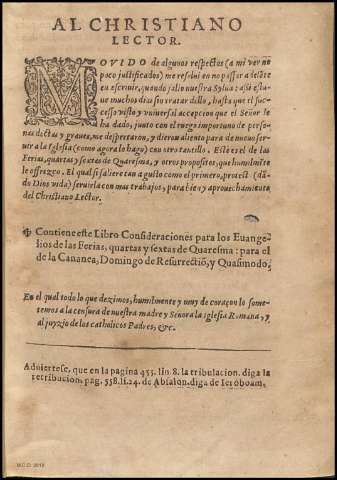 AL CHRISTIANO
LECTOR.
MOVIDO de algunos respectos (a mi ver no
poco justificados) me resolui en no passar adelãte
en escreuir, quando salio nuestra Sylua: assi estu-
ue muchos dias sin tratar dello, hasta que el suc-
cesso visto y vniuersal accepcion que el Señor le
ha dado, junto con el ruego importuno de perso-
nas doctas y graues, me despertaron, y dieron aliento para de nueuo ser-
uir a la Iglesia (como agora lo hago) con otro tantillo. Este es el de las
Ferias, quartas y sextas de Quaresma, y otros propositos, que humilmẽte
le offrezco. El qual si saliere tan a gusto como el primero, protest (dã
do Dios vida) seruirla con mas trabajos, para bien y aprouechamiẽto
del Christiano Lector.
Contiene este Libro Consideraciones para los Euange-
lios de las Ferias, quartas y sextas de Quaresma: para el
de la Cananea, Domingo de Resurrectiõ, y Quasimodo,
En el qual todo lo que dezimos, humilmente y muy de coraçon lo some-
temos a la censura de nuestra madre y Señora la Iglesia Romana, y
al juyzio de los catholicos Padres, &c.
Aduiertese, que en la pagina 455. lin 8. la tribulacion. diga la
retribucion. pag. 558. li. 24. de Absalon. diga de Ieroboam,
M.C.D. 2018